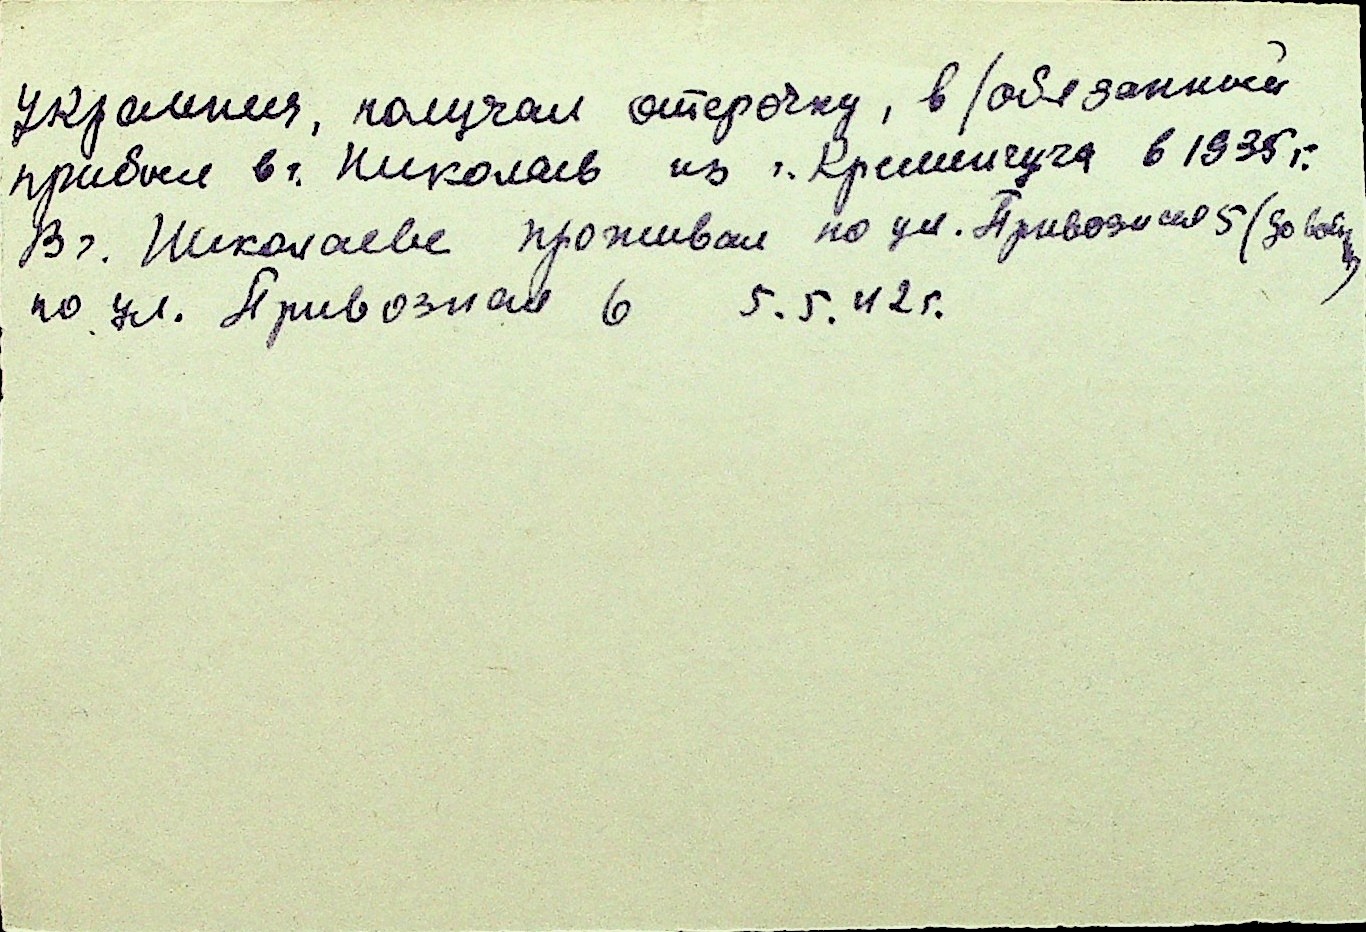 украинец, получал отсрочку, в/обязанный
прибыл в г. Николаев из г. Кременчуга в 1935 г.
В г. Николаеве проживал по ул. Привозная 5 (до войны)
по ул. Привозная 6 5.5.42 г.